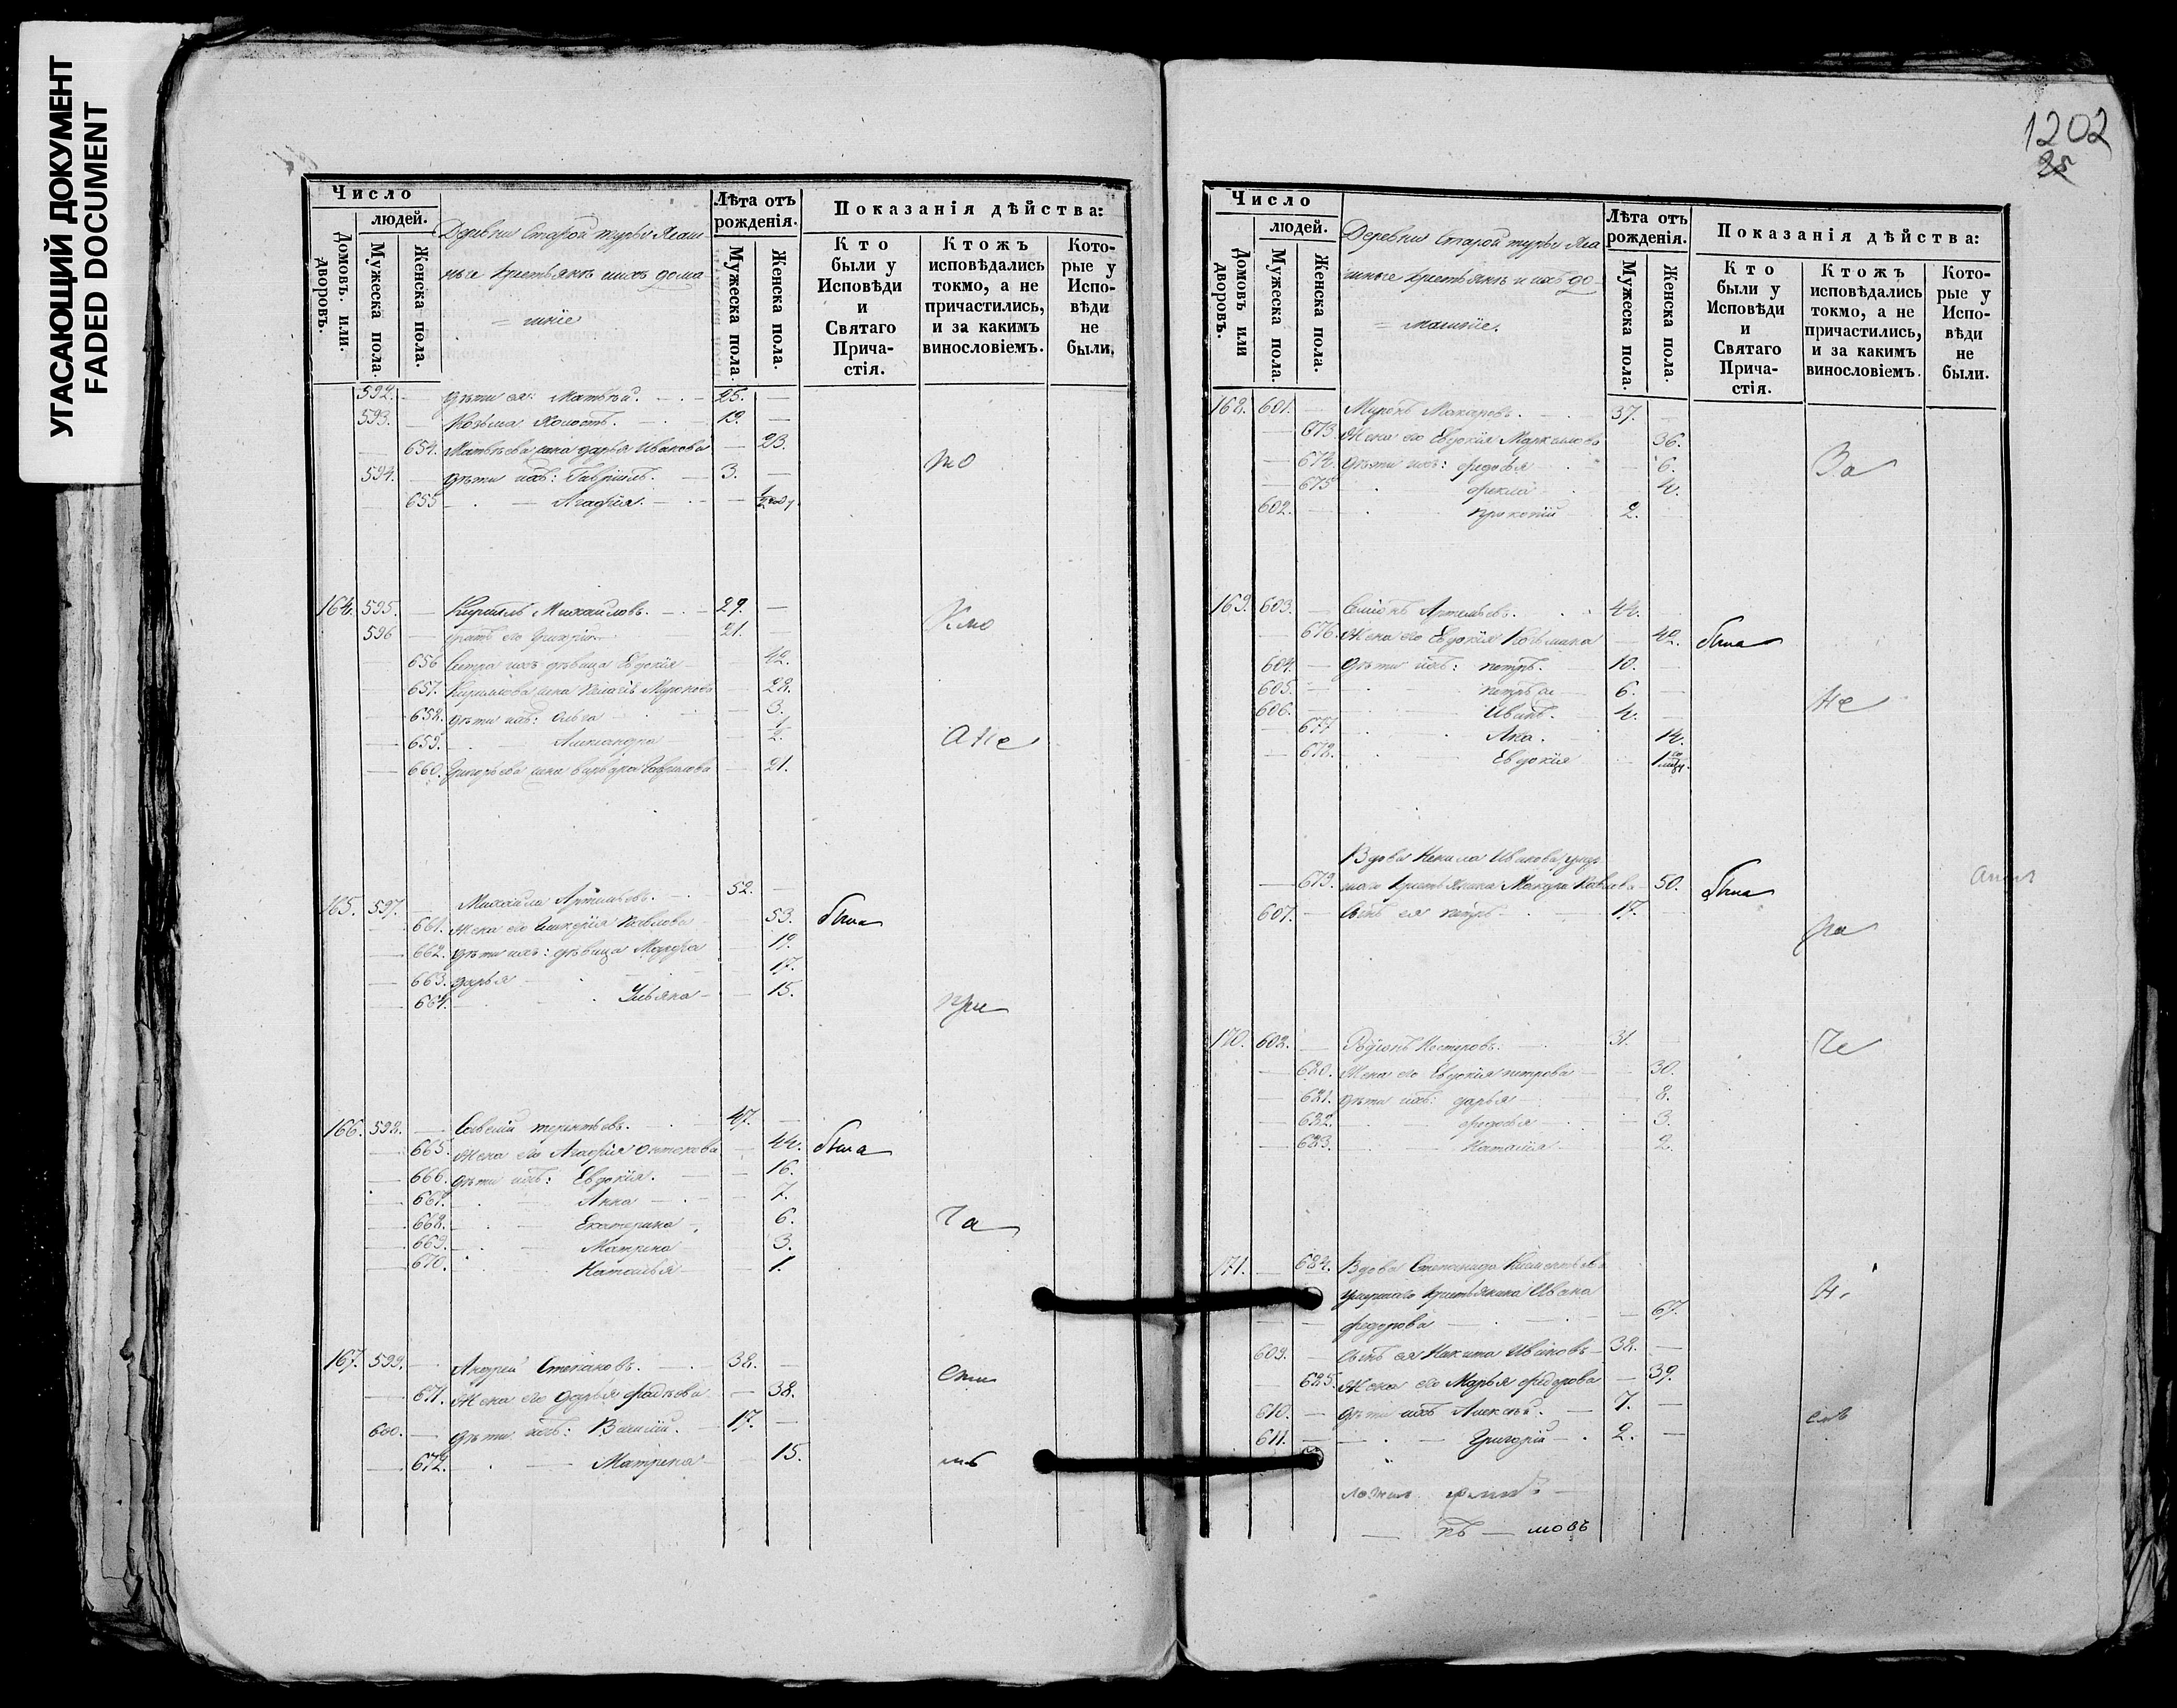 УГАСАЮЩИЙ ДОКУМЕНТ
FADED DOCUMENT
Число
людей.
Домовъ или дворовъ.
Мужеска пола.
Женска пола.
Деревни Старой турьи
крестьянъ ихъ дома-
= шніе
Лѣта отъ рожденія.
Мужеска пола.
Женска пола.
Показанія дѣйства:
Кто были у Исповѣди и Святаго Прича-стія.
Ктожъ исповѣдались токмо, а не причастились, и за какимъ винословіемъ.
Кото-рые у Испо-вѣди не были.
592. дѣти ея: Матвѣй. 25.
593. Козьма Холостъ. 19.
654. Матвѣева жена дарья Иванова 23.
594. дѣти ихъ: Гаврiилъ. 3.
655 Агафія. 1/2 году
164. 595. Кирилъ Михаиловъ. 29.
596 братъ его Григорій 21.
656 Сестра ихъ дѣвица Евдокія 42.
657. Кирилова жена Мѵронова 28.
658. дѣти ихъ: Ольга 3.
659. Александра 1/2.
аНе
660. Григорьева жена варвара Гаврилова 21.
165. 597. Михаила Артемьевъ. 52.
661. Жена его Гликерія Павлова 53. была
662. дѣти ихъ: дѣвица Марфа 19.
663. дарья 17.
664. Ульяна 15.
при
166. 598. Савелій терентьевъ. 47.
665. Жена его Агафія Антонова 44. была
666. дѣти ихъ: Евдокія. 16.
667. Анна 7.
668. Екатерина 6.
ча
669. Матрена 3.
670. Наталья 1.
167. 599. Андрей Степановъ. 38.
671. Жена его дарья 38.
600. дѣти ихъ: Василій. 17.
672. Матрена 15.
1202
25
Число
людей.
Домовъ или дворовъ.
Мужеска пола.
Женска пола.
Деревни Старой турьи
крестьянъ и ихъ до-
= машніе.
Лѣта отъ рожденія.
Мужеска пола.
Женска пола.
Показанія дѣйства:
Кто были у Исповѣди и Святаго Прича-стія.
Ктожъ исповѣдались токмо, а не причастились, и за какимъ винословіемъ.
Кото-рые у Испо-вѣди не были.
168. 601. Мѵронъ Макаровъ. 37.
673. Жена его Евдокія 36.
674. дѣти ихъ: федосья 6.
За
675 фекла 4.
602. прокопій 2.
169. 603. Семіонъ Артемьевъ. 44.
676. Жена его Евдокія Козьмина 42. была
604. дѣти ихъ: петръ. 10.
605. петръ 6.
606. Иванъ. 4.
Не
677 Анна. 14.
678. Евдокія 1
Вдова Ненила Иванова умер
679. шаго крестьянина Макара Павлова 50. была
607. Сынъ ея петръ 17.
ра
170. 608. Родіонъ Нестеровъ. 31.
че
680. Жена его Евдокія петрова 30.
681. дѣти ихъ: дарья 8.
682. федосья 3.
683. Наталія 2.
171. 684. Вдова Степанида
умершаго крестьянина Ивана
федорова 67.
609. Сынъ ея Никита Ивановъ 38.
685. Жена его Марья федорова 39.
610. дѣти ихъ Алексѣй. 7.
611. Григорій 2.